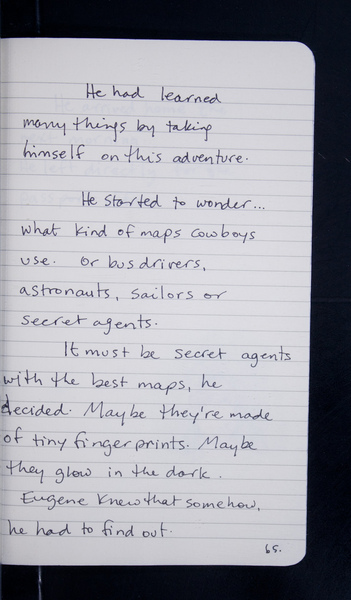 He had learned
many things by taking
himself on this adventure.
He started to wonder...
what kind of maps cowboys
use. Or bus drivers,
astronauts, sailors or
secret agents.
It must be secret agents
with the best maps, he
decided. Maybe they're made
of tiny fingerprints. Maybe
they glow in the dark.
Eugene knew that somehow,
he had to find out.
65.